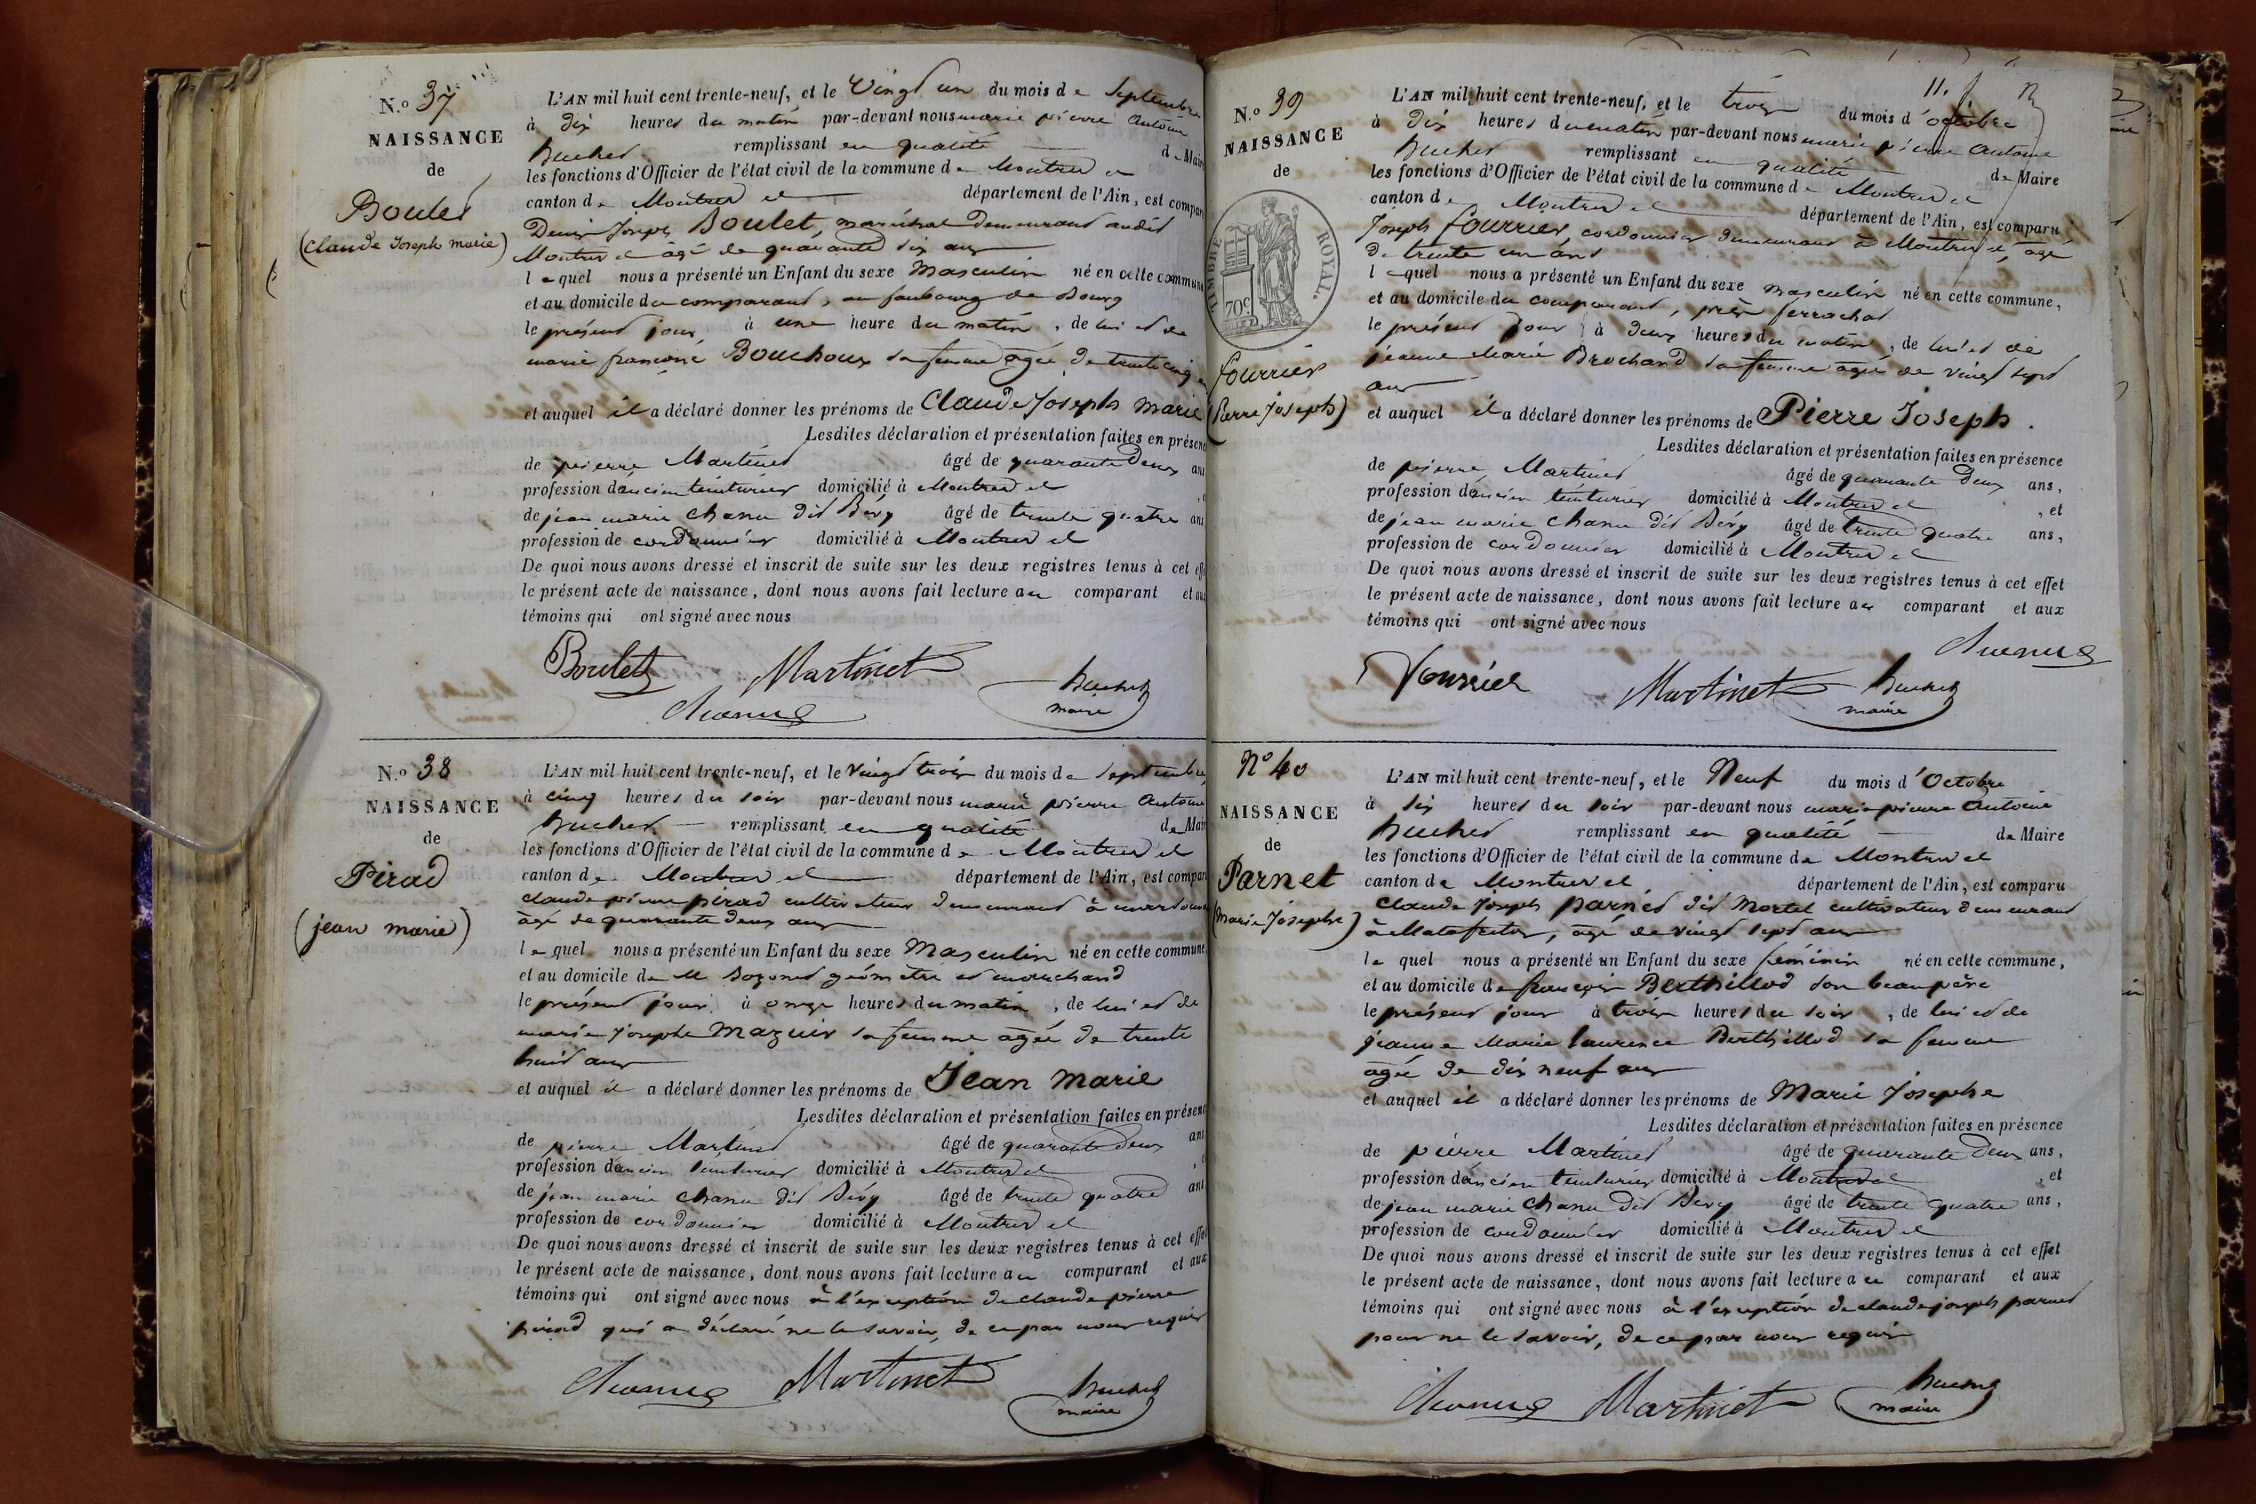 N.o 37
NAISSANCE
de
Boulet
(Claude Joseph marie)
L'AN mil huit cent trente-neuf, et le Vingt un du mois de Septembre
à dix heures du matin par-devant nous marie pierre Antoine
Buchet remplissant en qualité de Mair
les fonctions d'Officier de l'état civil de la commune de Montrevel
canton de Montrevel département de l'Ain, est compar
Denis Joseph Boulet, maréchal demeurant audit
Montrevel âgé de quarante six ans
lequel nous a présenté un Enfant du sexe Masculin né en cette commune
et au domicile du comparant, au faubourg de Bourg
le présent jour à une heure du matin, de lui et de
marie françoise Bouchoux sa femme agée de trente cinq
et auquel il a déclaré donner les prénoms de Claude Joseph Marie
Lesdites déclaration et présentation faites en présenc
de pierre Martinet âgé de quarante deux ans
profession d'ancien teinturier domicilié à Montrevel
de jean marie Chanu dit Bévy âgé de trente quatre ans
profession de cordonnier domicilié à Montrevel
De quoi nous avons dressé et inscrit de suite sur les deux registres tenus à cet effe
le présent acte de naissance, dont nous avons fait lecture au comparant et aux
témoins qui ont signé avec nous
Boulet Martinet Buchet
maire
Chanu
N.o 38
NAISSANCE
de
Pirad
(jean marie)
L'AN mil huit cent trente-neuf, et le Vingt trois du mois de Septembre
à cinq heures du soir par-devant nous marie pierre Antoine
Buchet remplissant en qualité de Mair
les fonctions d'Officier de l'état civil de la commune de Montrevel
canton de Montrevel département de l'Ain, est compar
claude pierre pirad cultivateur demeurant à
âgé de quarante deux ans
lequel nous a présenté un Enfant du sexe Masculin né en cette commune
et au domicile de M Bozonet géomètre et marchand
le présent jour à onze heures du matin, de lui et de
marie Josephe Mazuir sa femme agée de trente
huit ans
et auquel il a déclaré donner les prénoms de Jean Marie
Lesdites déclaration et présentation faites en présenc
de pierre Martinet âgé de quarante deux ans
profession d'ancien teinturier domicilié à Montrevel
de jean marie Chanu dit Bévy âgé de trente quatre ans
profession de cordonnier domicilié à Montrevel
De quoi nous avons dressé et inscrit de suite sur les deux registres tenus à cet effet
le présent acte de naissance, dont nous avons fait lecture au comparant et aux
témoins qui ont signé avec nous à l'exception de claude pierre
pirad qui a déclaré ne le savoir, de ce par nous requis
Chanu Martinet Buchet
maire
11.
N.o 39
NAISSANCE
de
TIMBRE ROYAL.
70c
fourrier
(Pierre Joseph)
L'AN mil huit cent trente-neuf, et le trois du mois d'octobre
à dix heures du matin par-devant nous marie pierre Antoine
Buchet remplissant en qualité de Maire
les fonctions d'Officier de l'état civil de la commune de Montrevel
canton de Montrevel département de l'Ain, est comparu
Joseph fourrier, cordonnier demeurant à Montrevel, âgé
de trente un ans
lequel nous a présenté un Enfant du sexe masculin né en cette commune,
et au domicile du comparant, près ferrachat
le présent jour à deux heures du matin, de lui et de
jeanne Marie Brochand sa femme agée de vingt sept
ans
et auquel il a déclaré donner les prénoms de Pierre Joseph.
Lesdites déclaration et présentation faites en présence
de pierre Martinet âgé de quarante deux ans,
profession d'ancien teinturier domicilié à Montrevel, et
de jean marie Chanu dit Bévy âgé de trente quatre ans,
profession de cordonnier domicilié à Montrevel
De quoi nous avons dressé et inscrit de suite sur les deux registres tenus à cet effet
le présent acte de naissance, dont nous avons fait lecture au comparant et aux
témoins qui ont signé avec nous
Chanu
fourrier Martinet Buchet
maire
No 40
NAISSANCE
de
Parnet
(Marie Josephe)
L'AN mil huit cent trente-neuf, et le Neuf du mois d'Octobre
à six heures du soir par-devant nous marie pierre Antoine
Buchet remplissant en qualité de Maire
les fonctions d'Officier de l'état civil de la commune de Montrevel
canton de Montrevel département de l'Ain, est comparu
Claude Joseph parnet dit Mortel cultivateur demeurant
à Malafretaz, âgé de vingt sept ans
lequel nous a présenté un Enfant du sexe féminin né en cette commune,
et au domicile de françois Berthillod son beau père
le présent jour à trois heures du soir, de lui et de
jeanne Marie laurence Berthillod sa femme
agée de dix neuf ans
et auquel il a déclaré donner les prénoms de Marie Josephe
Lesdites déclaration et présentation faites en présence
de pierre Martinet âgé de quarante deux ans,
profession d'ancien teinturier domicilié à Montrevel, et
de jean marie Chanu dit Bévy âgé de trente quatre ans,
profession de cordonnier domicilié à Montrevel
De quoi nous avons dressé et inscrit de suite sur les deux registres tenus à cet effet
le présent acte de naissance, dont nous avons fait lecture au comparant et aux
témoins qui ont signé avec nous à l'exception de claude joseph parnet
pour ne le savoir, de ce par nous requis
Chanu Martinet Buchet
maire